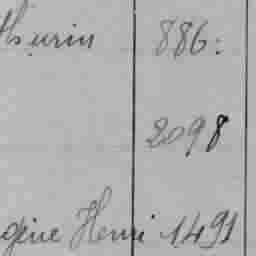 thurin 886:
2098
gène Henri 1491